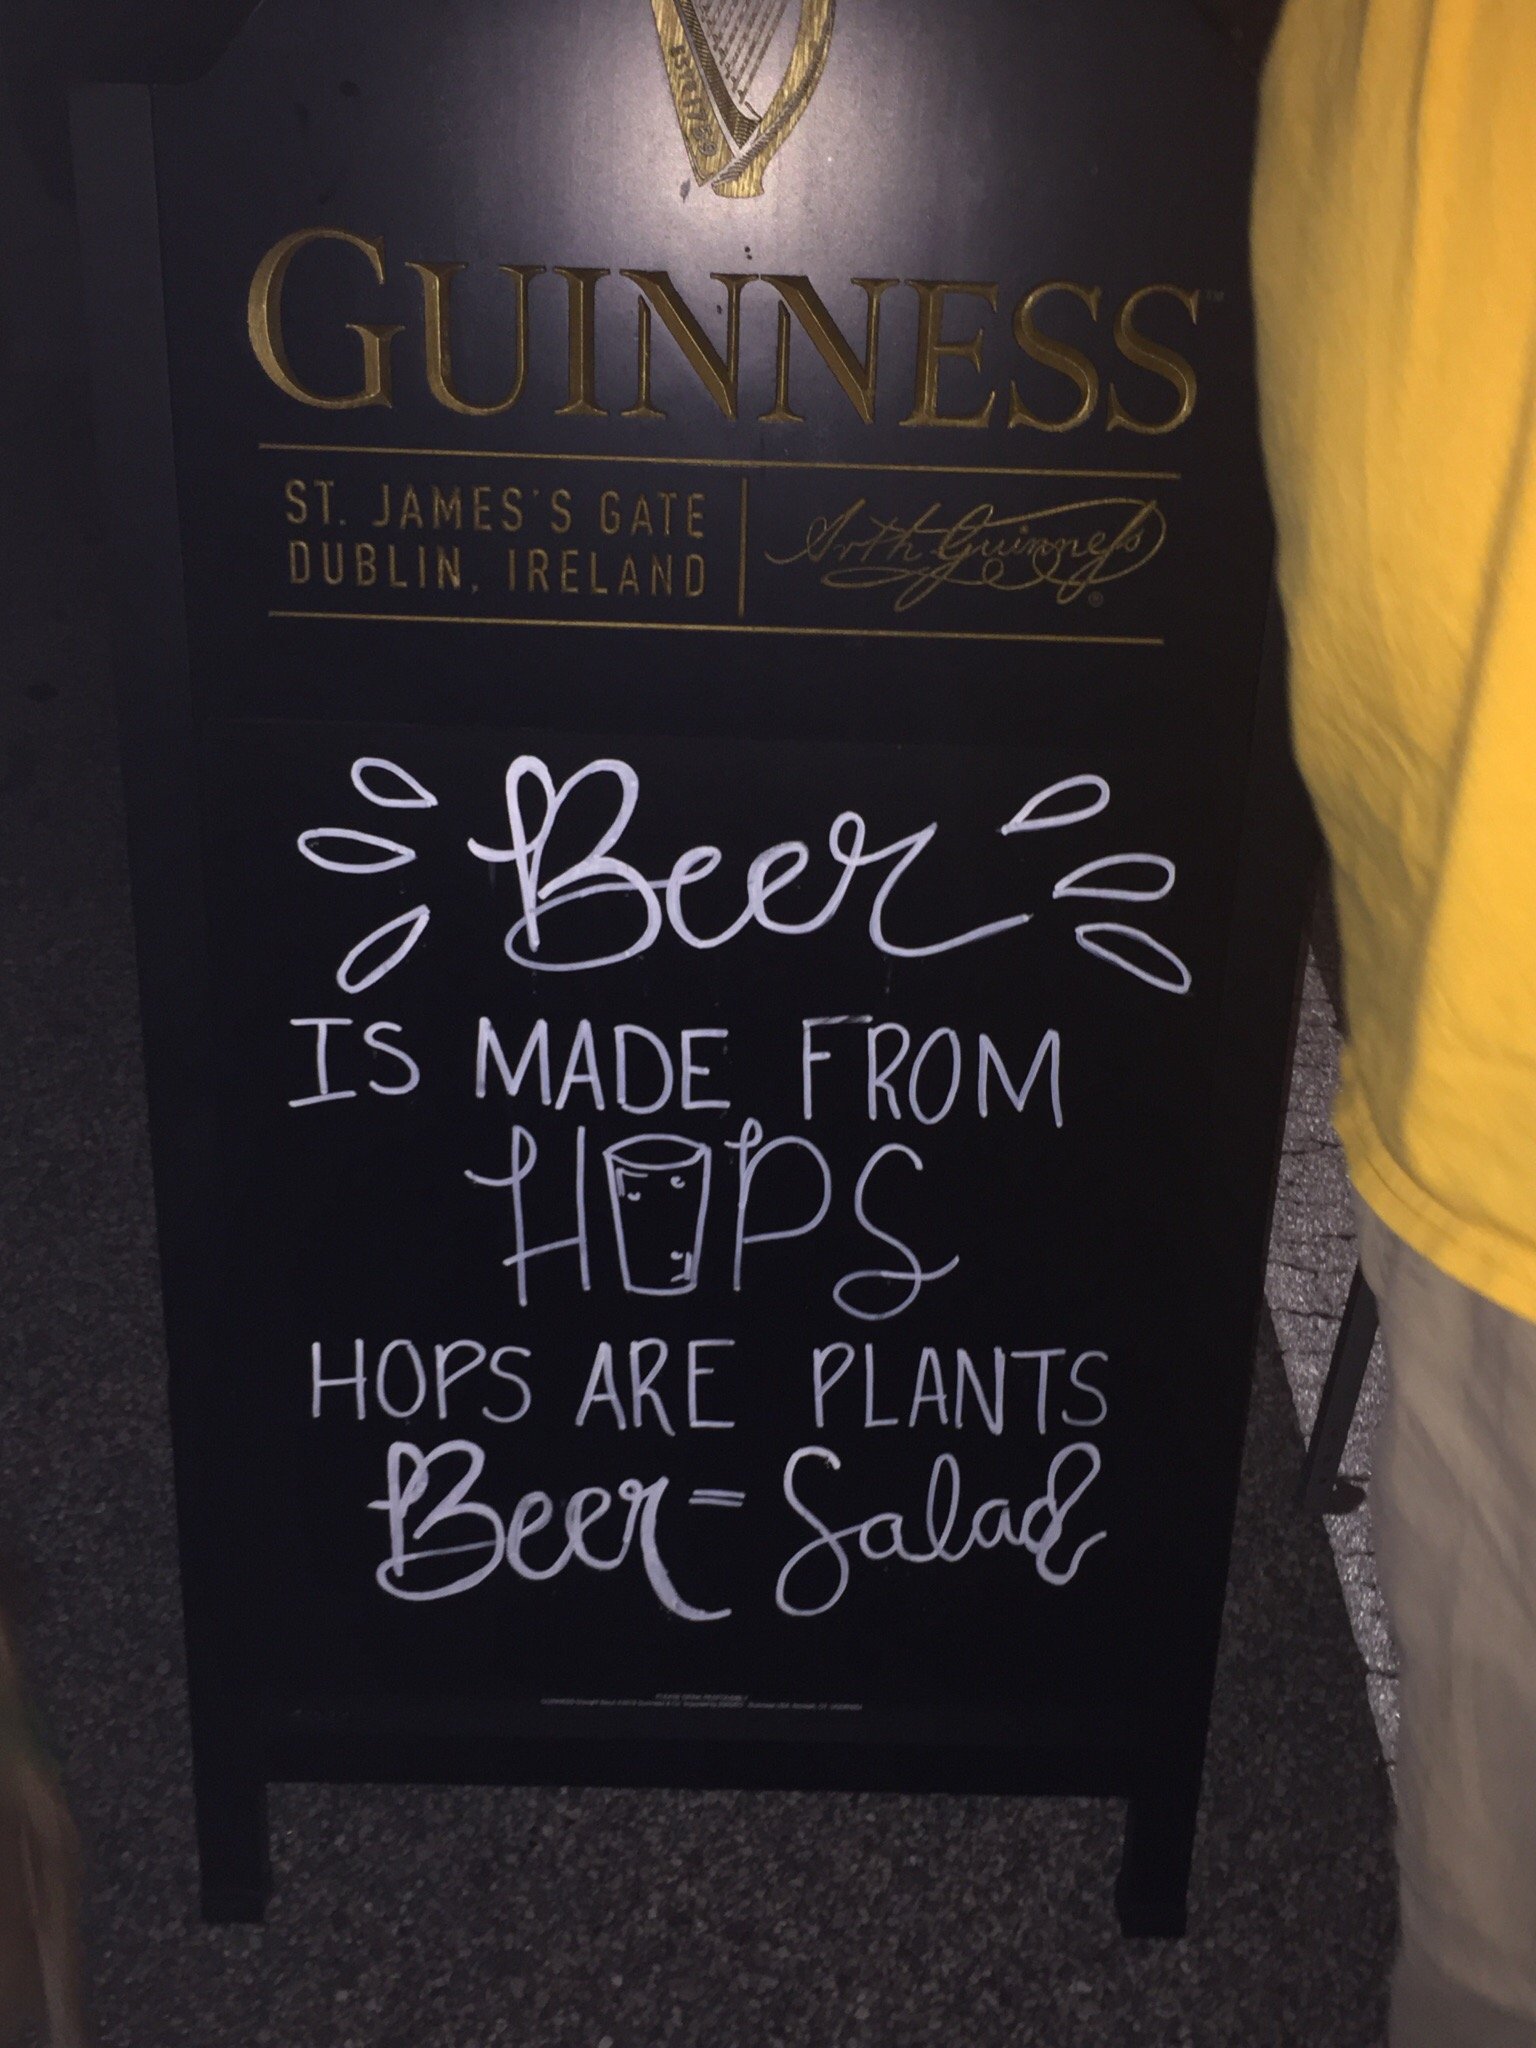 GUINNESS™
ST. JAMES'S GATE
DUBLIN, IRELAND
Arth Guinness®
Beer
IS MADE FROM
HOPS
HOPS ARE PLANTS
Beer = Salad